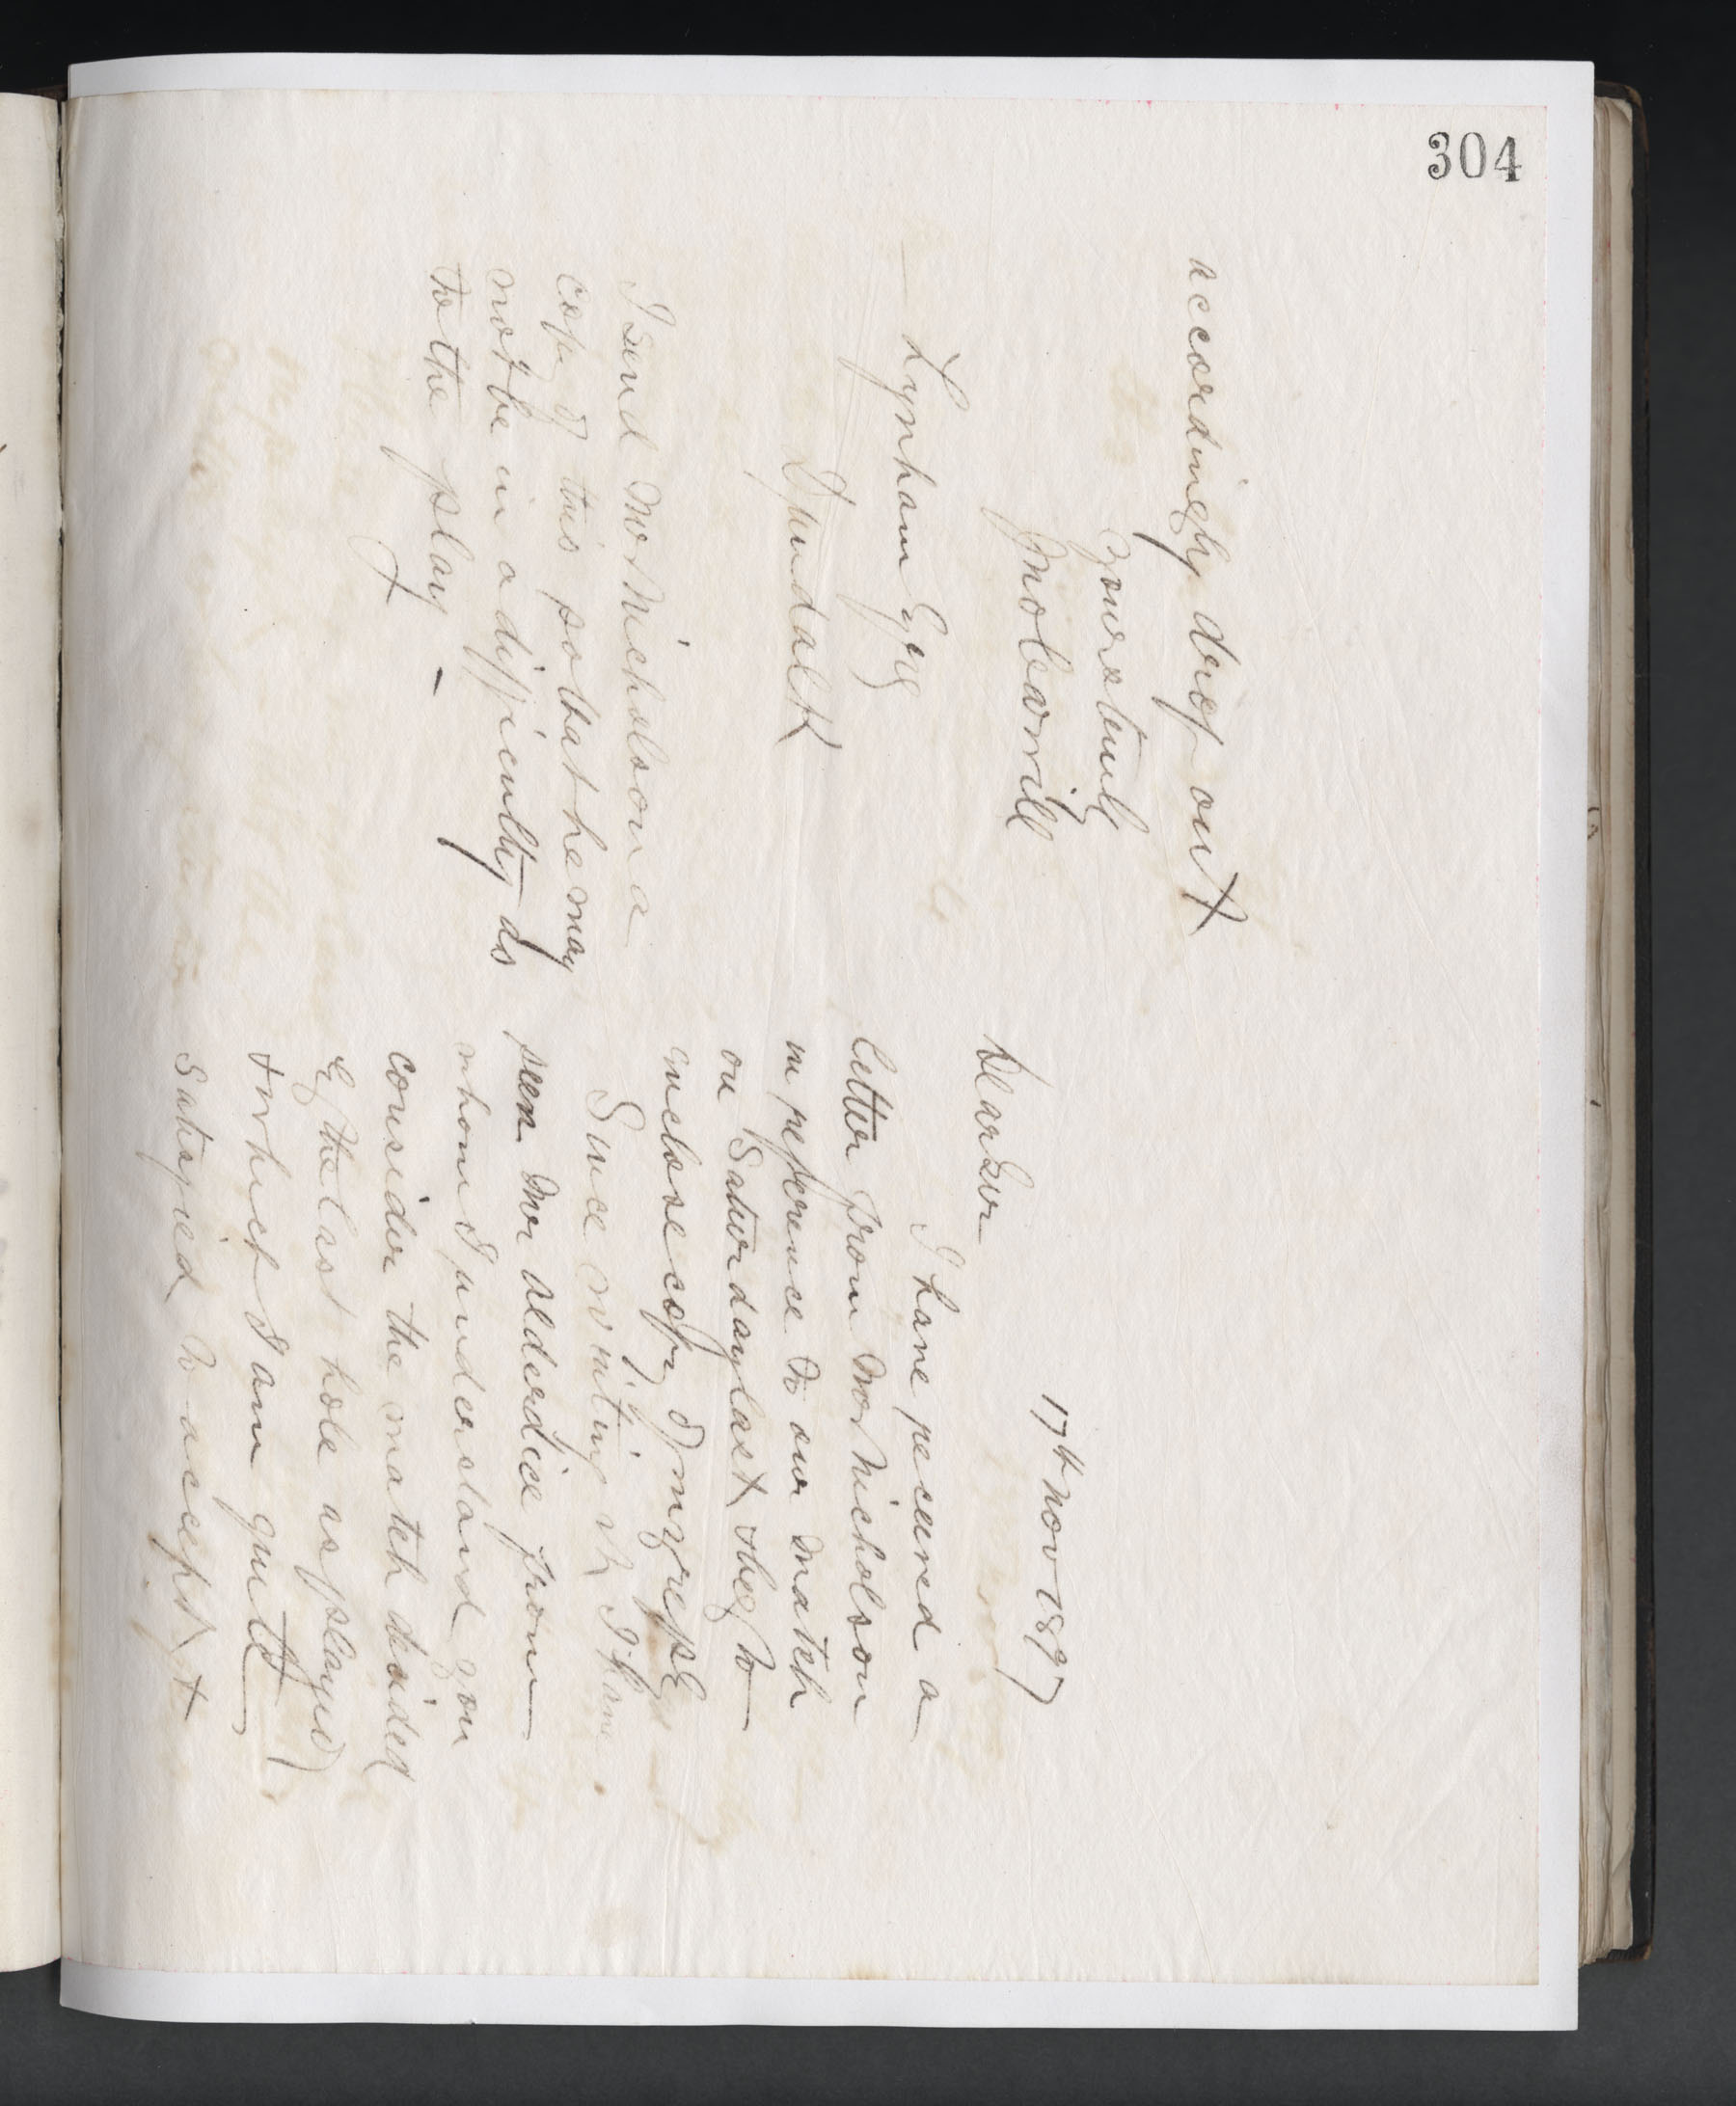 304
accordingly drop out
Yours truly
Lynham Esqre
Dundalk
I send Mr Nicholson a
copy of this so that he may
not be in a difficulty as
to the play -
17th Nov 1897
Dear Sir
I have received a
letter from Mr Nicholson
in reference to our match
on Saturday last & beg to
inclose copy of my reply
Since writing it I have
seen Mr Alderdice from
whom I understand you
consider the match decided
by the last hole as played
in which I am quite
satisfied to accept it